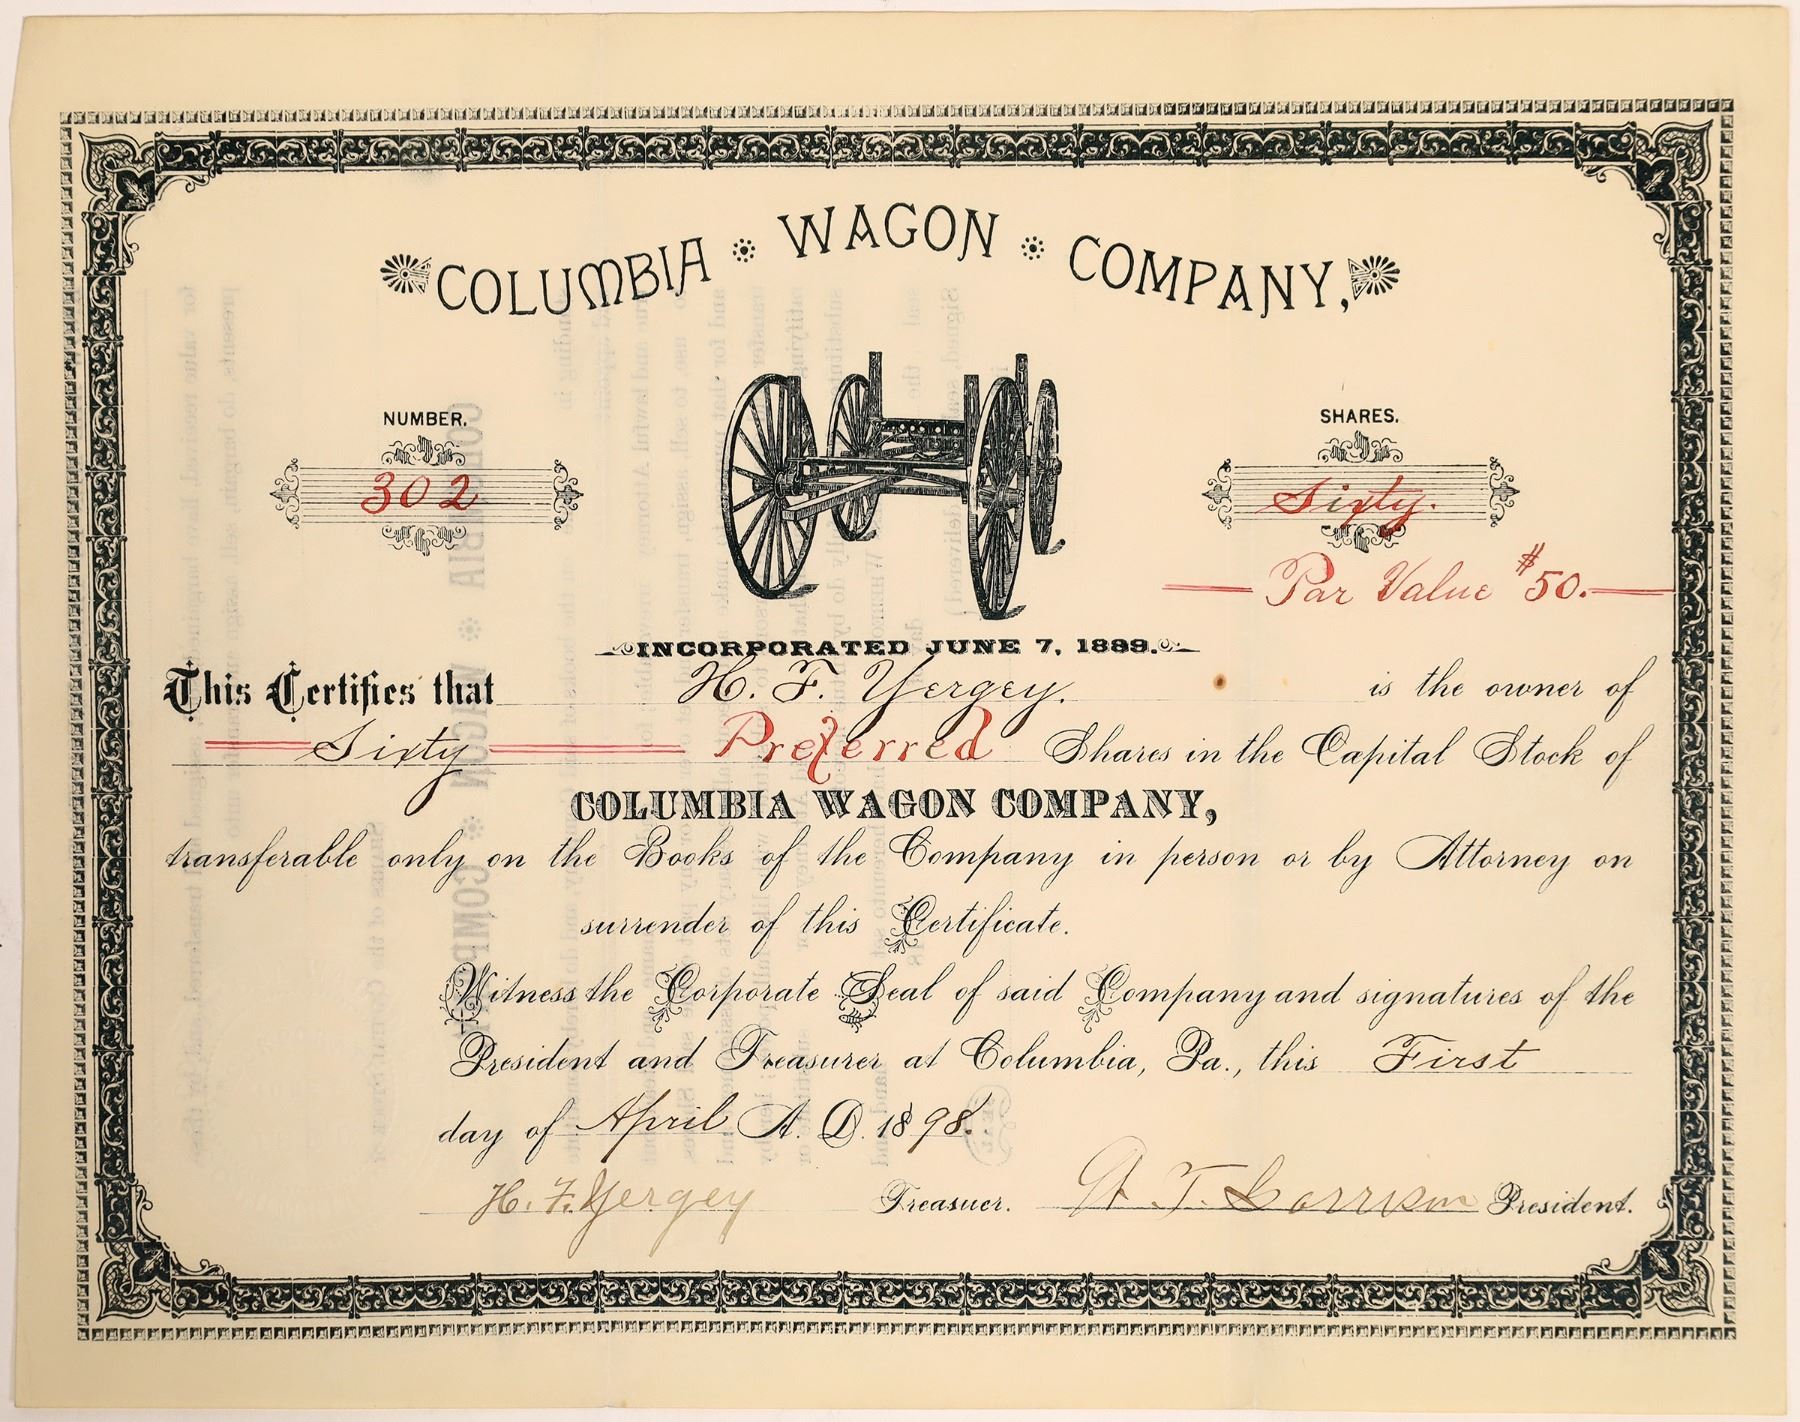 COLUMBIA WAGON COMPANY,
NUMBER.
302
SHARES.
Sixty.
Par Value $50.
INCORPORATED JUNE 7, 1889.
This Certifies that H. F. Yergey. is the owner of
Sixty Preferred Shares in the Capital Stock of
COLUMBIA WAGON COMPANY,
transferable only on the Books of the Company in person or by Attorney on
surrender of this Certificate.
Witness the Corporate Seal of said Company and signatures of the
President and Treasurer at Columbia, Pa., this First
day of April A. D. 1898.
H. F. Yergey Treasurer. President.